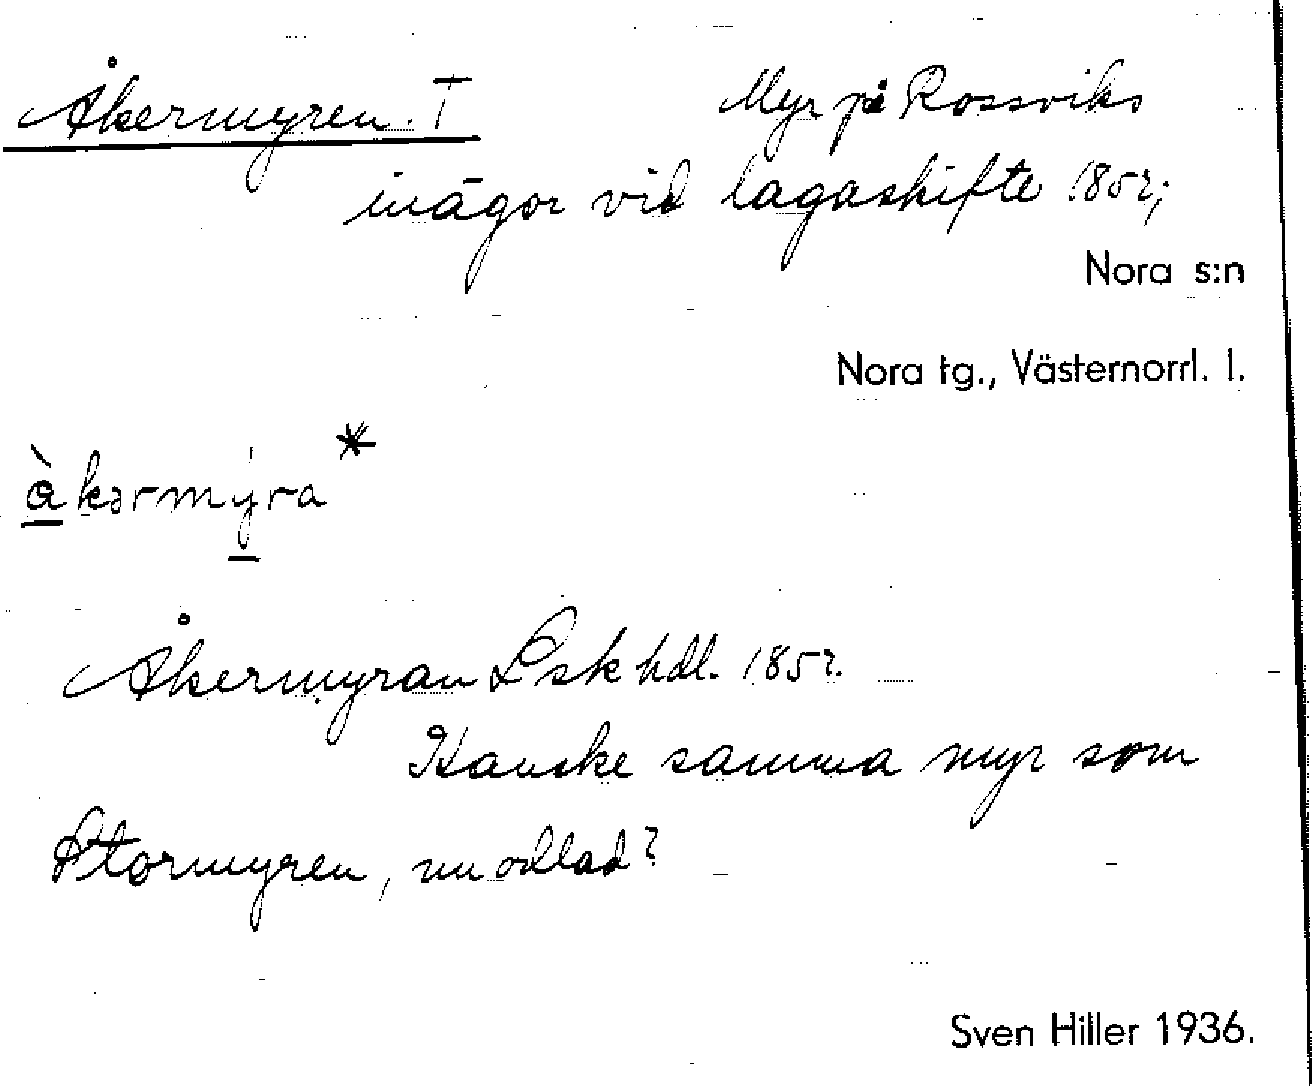 Åkermyren. T Myr på Rossviks
inägor vid lagaskifte 1852;
Nora s:n
Nora tg., Västernorrl. l.
àkərmyra*
Åkermyran Lskhdl. 1852.
Kanske samma myr som
Stormyren, nu odlad?
Sven Hiller 1936.